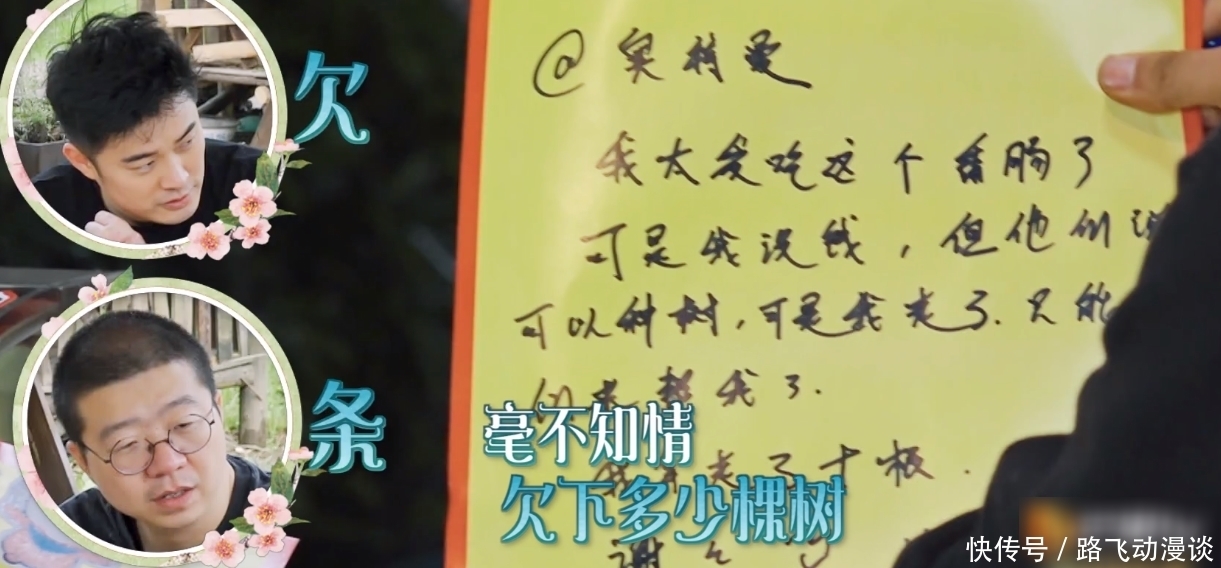 欠
条
@奥特曼
我太爱吃这个香肠了
可是我没钱，但他们说
可以种树，可是我走了.只能
们来帮我了.
走了十根.
谢
毫不知情
欠下多少棵树
快传号 / 路飞动漫谈